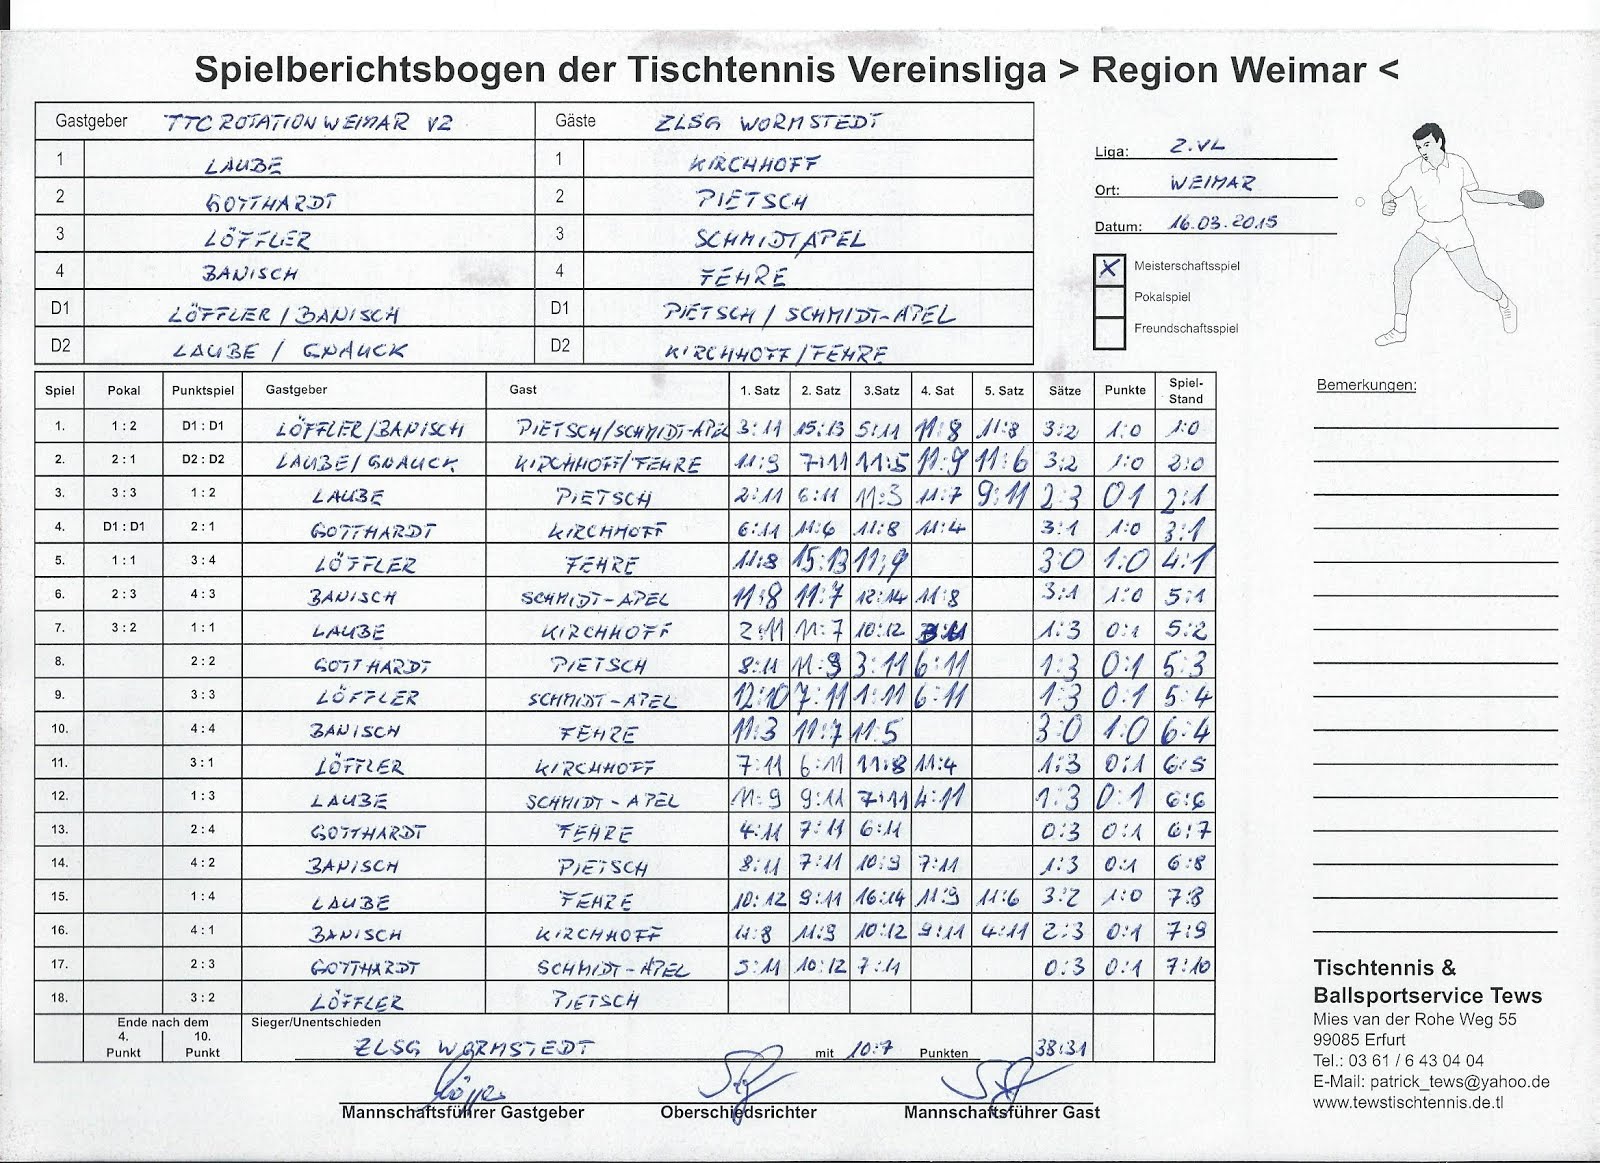 Spielberichtsbogen der Tischtennis Vereinsliga > Region Weimar <
Gastgeber TTC ROTATION WEIMAR V2 Gäste ZLSG WORMSTEDT
1 LAUBE 1 KIRCHHOFF
2 GOTTHARDT 2 PIETSCH
3 LÖFFLER 3 SCHMIDTAPEL
4 BANISCH 4 FEHRE
D1 LÖFFLER / BANISCH D1 PIETSCH / SCHMIDT-APEL
D2 LAUBE / GNAUCK D2 KIRCHHOFF/FEHRE
Liga: 2.VL
Ort: WEIMAR
Datum: 16.03.2015
X Meisterschaftsspiel
Pokalspiel
Freundschaftsspiel
Spiel Pokal Punktspiel Gastgeber Gast 1. Satz 2. Satz 3.Satz 4. Sat 5. Satz Sätze Punkte Spiel-Stand
1. 1 : 2 D1 : D1 LÖFFLER/BANISCH PIETSCH/SCHMIDT-APEL 3:11 15:13 5:11 11:8 11:8 3:2 1:0 1:0
2. 2 : 1 D2 : D2 LAUBE/GNAUCK KIRCHHOFF/FEHRE 11:9 7:11 11:5 11:9 11:6 3:2 1:0 2:0
3. 3 : 3 1 : 2 LAUBE PIETSCH 2:11 6:11 11:3 11:7 9:11 2:3 0:1 2:1
4. D1 : D1 2 : 1 GOTTHARDT KIRCHHOFF 6:11 11:6 11:8 11:4 3:1 1:0 3:1
5. 1 : 1 3 : 4 LÖFFLER FEHRE 11:8 15:13 11:9 3:0 1:0 4:1
6. 2 : 3 4 : 3 BANISCH SCHMIDT-APEL 11:8 11:7 12:14 11:8 3:1 1:0 5:1
7. 3 : 2 1 : 1 LAUBE KIRCHHOFF 2:11 11:7 10:12 3:11 1:3 0:1 5:2
8. 2 : 2 GOTTHARDT PIETSCH 8:11 11:9 3:11 6:11 1:3 0:1 5:3
9. 3 : 3 LÖFFLER SCHMIDT-APEL 12:10 7:11 1:11 6:11 1:3 0:1 5:4
10. 4 : 4 BANISCH FEHRE 11:3 11:7 11:5 3:0 1:0 6:4
11. 3 : 1 LÖFFLER KIRCHHOFF 7:11 6:11 11:8 11:4 1:3 0:1 6:5
12. 1 : 3 LAUBE SCHMIDT-APEL 11:9 9:11 7:11 4:11 1:3 0:1 6:6
13. 2 : 4 GOTTHARDT FEHRE 4:11 7:11 6:11 0:3 0:1 6:7
14. 4 : 2 BANISCH PIETSCH 8:11 7:11 10:9 7:11 1:3 0:1 6:8
15. 1 : 4 LAUBE FEHRE 10:12 9:11 16:14 11:9 11:6 3:2 1:0 7:8
16. 4 : 1 BANISCH KIRCHHOFF 11:8 11:9 10:12 9:11 4:11 2:3 0:1 7:9
17. 2 : 3 GOTTHARDT SCHMIDT-APEL 5:11 10:12 7:11 0:3 0:1 7:10
18. 3 : 2 LÖFFLER PIETSCH
Ende nach dem
4. Punkt 10. Punkt
Sieger/Unentschieden
ZLSG WORMSTEDT mit 10:7 Punkten 38:31
Mannschaftsführer Gastgeber Oberschiedsrichter Mannschaftsführer Gast
Bemerkungen:
Tischtennis &
Ballsportservice Tews
Mies van der Rohe Weg 55
99085 Erfurt
Tel.: 03 61 / 6 43 04 04
E-Mail: patrick_tews@yahoo.de
www.tewstischtennis.de.tl